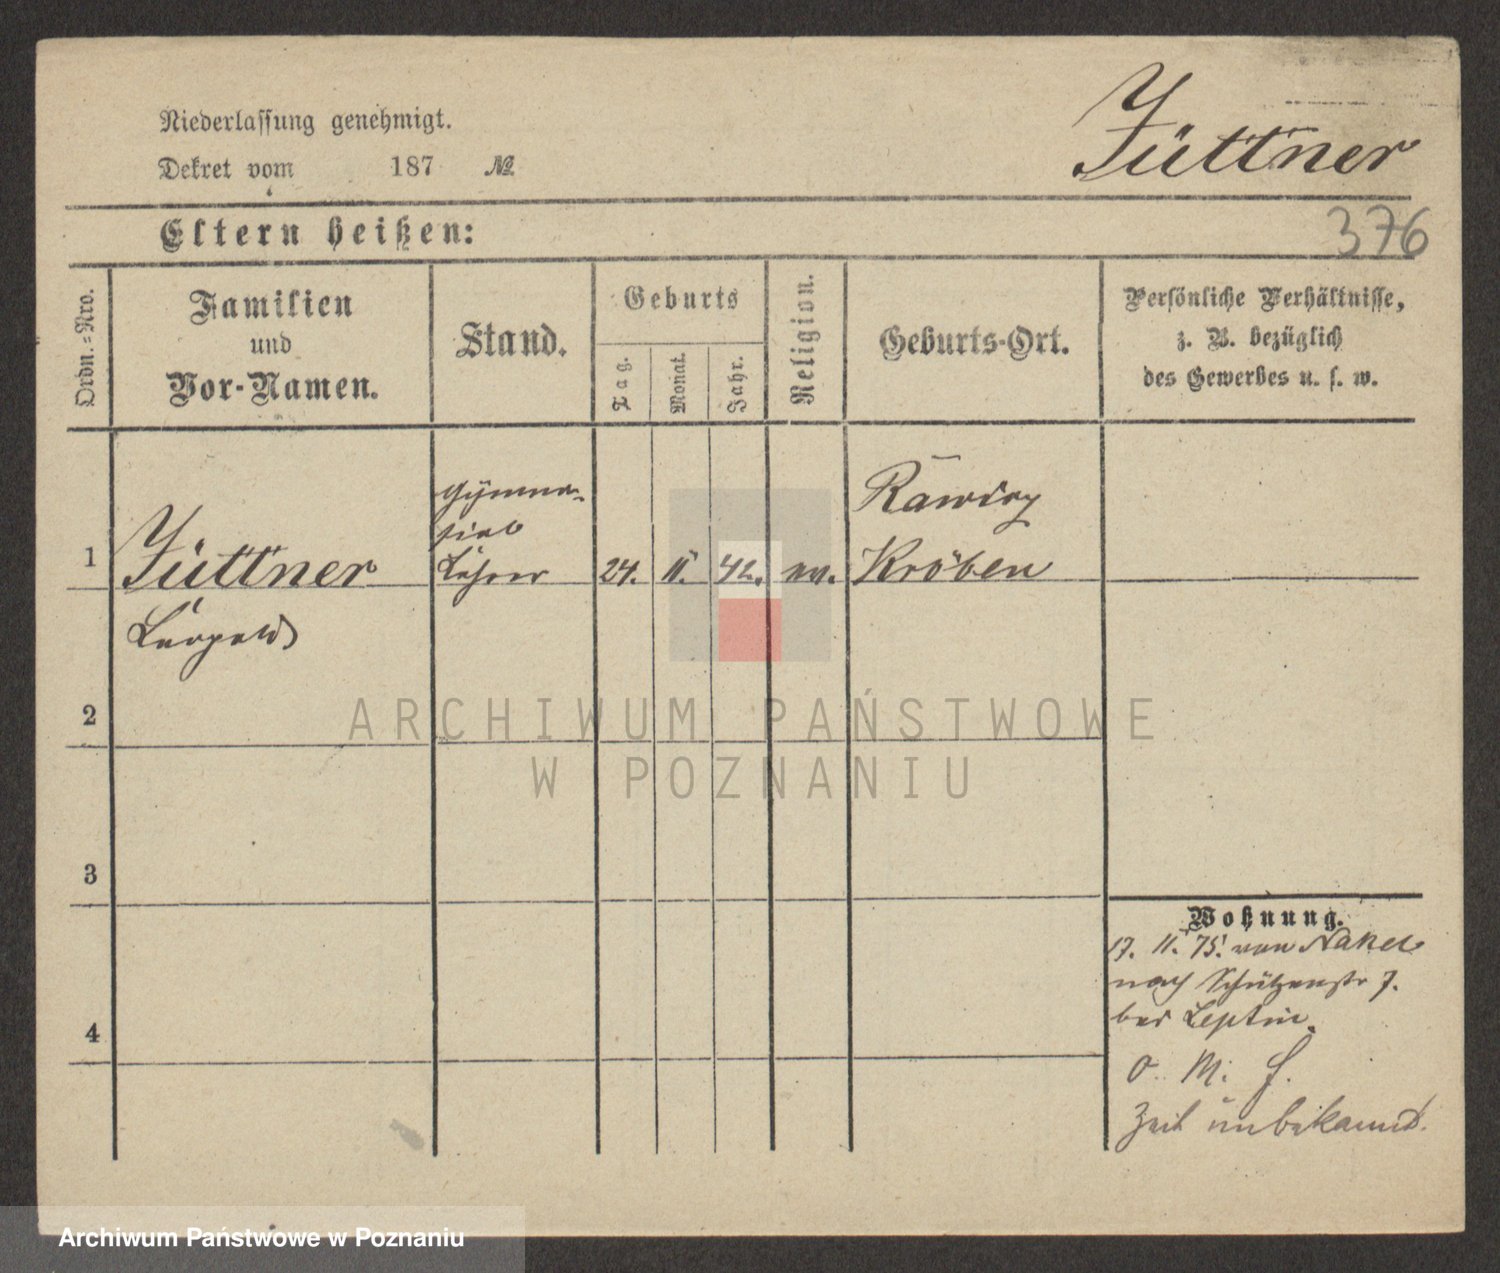 Niederlassung genehmigt.
Dekret vom 187 №
Jüttner
376
Eltern heißen:
Ordn.-Nro.
Familien
und
Vor-Namen.
Stand.
Geburts
Tag.
Monat.
Jahr.
Religion.
Geburts-Ort.
Persönliche Verhältnisse,
z. B. bezüglich
des Gewerbes u. s. w.
1
Jüttner
Leopold
Gymna-
sial
Lehrer
24.
11.
42.
Kröben
2
3
4
Wohnung.
17. 11. 75. von Nakel
nach Schützenstr 7.
bei
O. M. f.
Zeit unbekannt.
ARCHIWUM PAŃSTWOWE
W POZNANIU
Archiwum Państwowe w Poznaniu